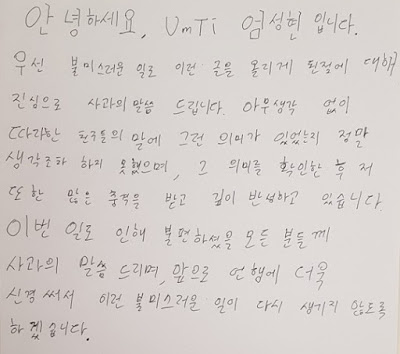 안녕하세요, UmTi 엄성현 입니다.
우선 불미스러운 일로 이런 글을 올리게 된점에 대해
진심으로 사과의말씀 드립니다. 아무생각 없이
따라한 친구들의 말에 그런 의미가 있었는지 정말
생각조차 하지 못했으며, 그 의미를 확인한 후 저
또한 많은 충격을 받고 깊이 반성하고 있습니다
이번 일로 인해 불편하셨을 모든 분들께
사과의 말씀 드리며, 앞으로 언행에 더욱
신경써서 이런 불미스러운 일이 다시 생기지 않도록
하겠습니다.